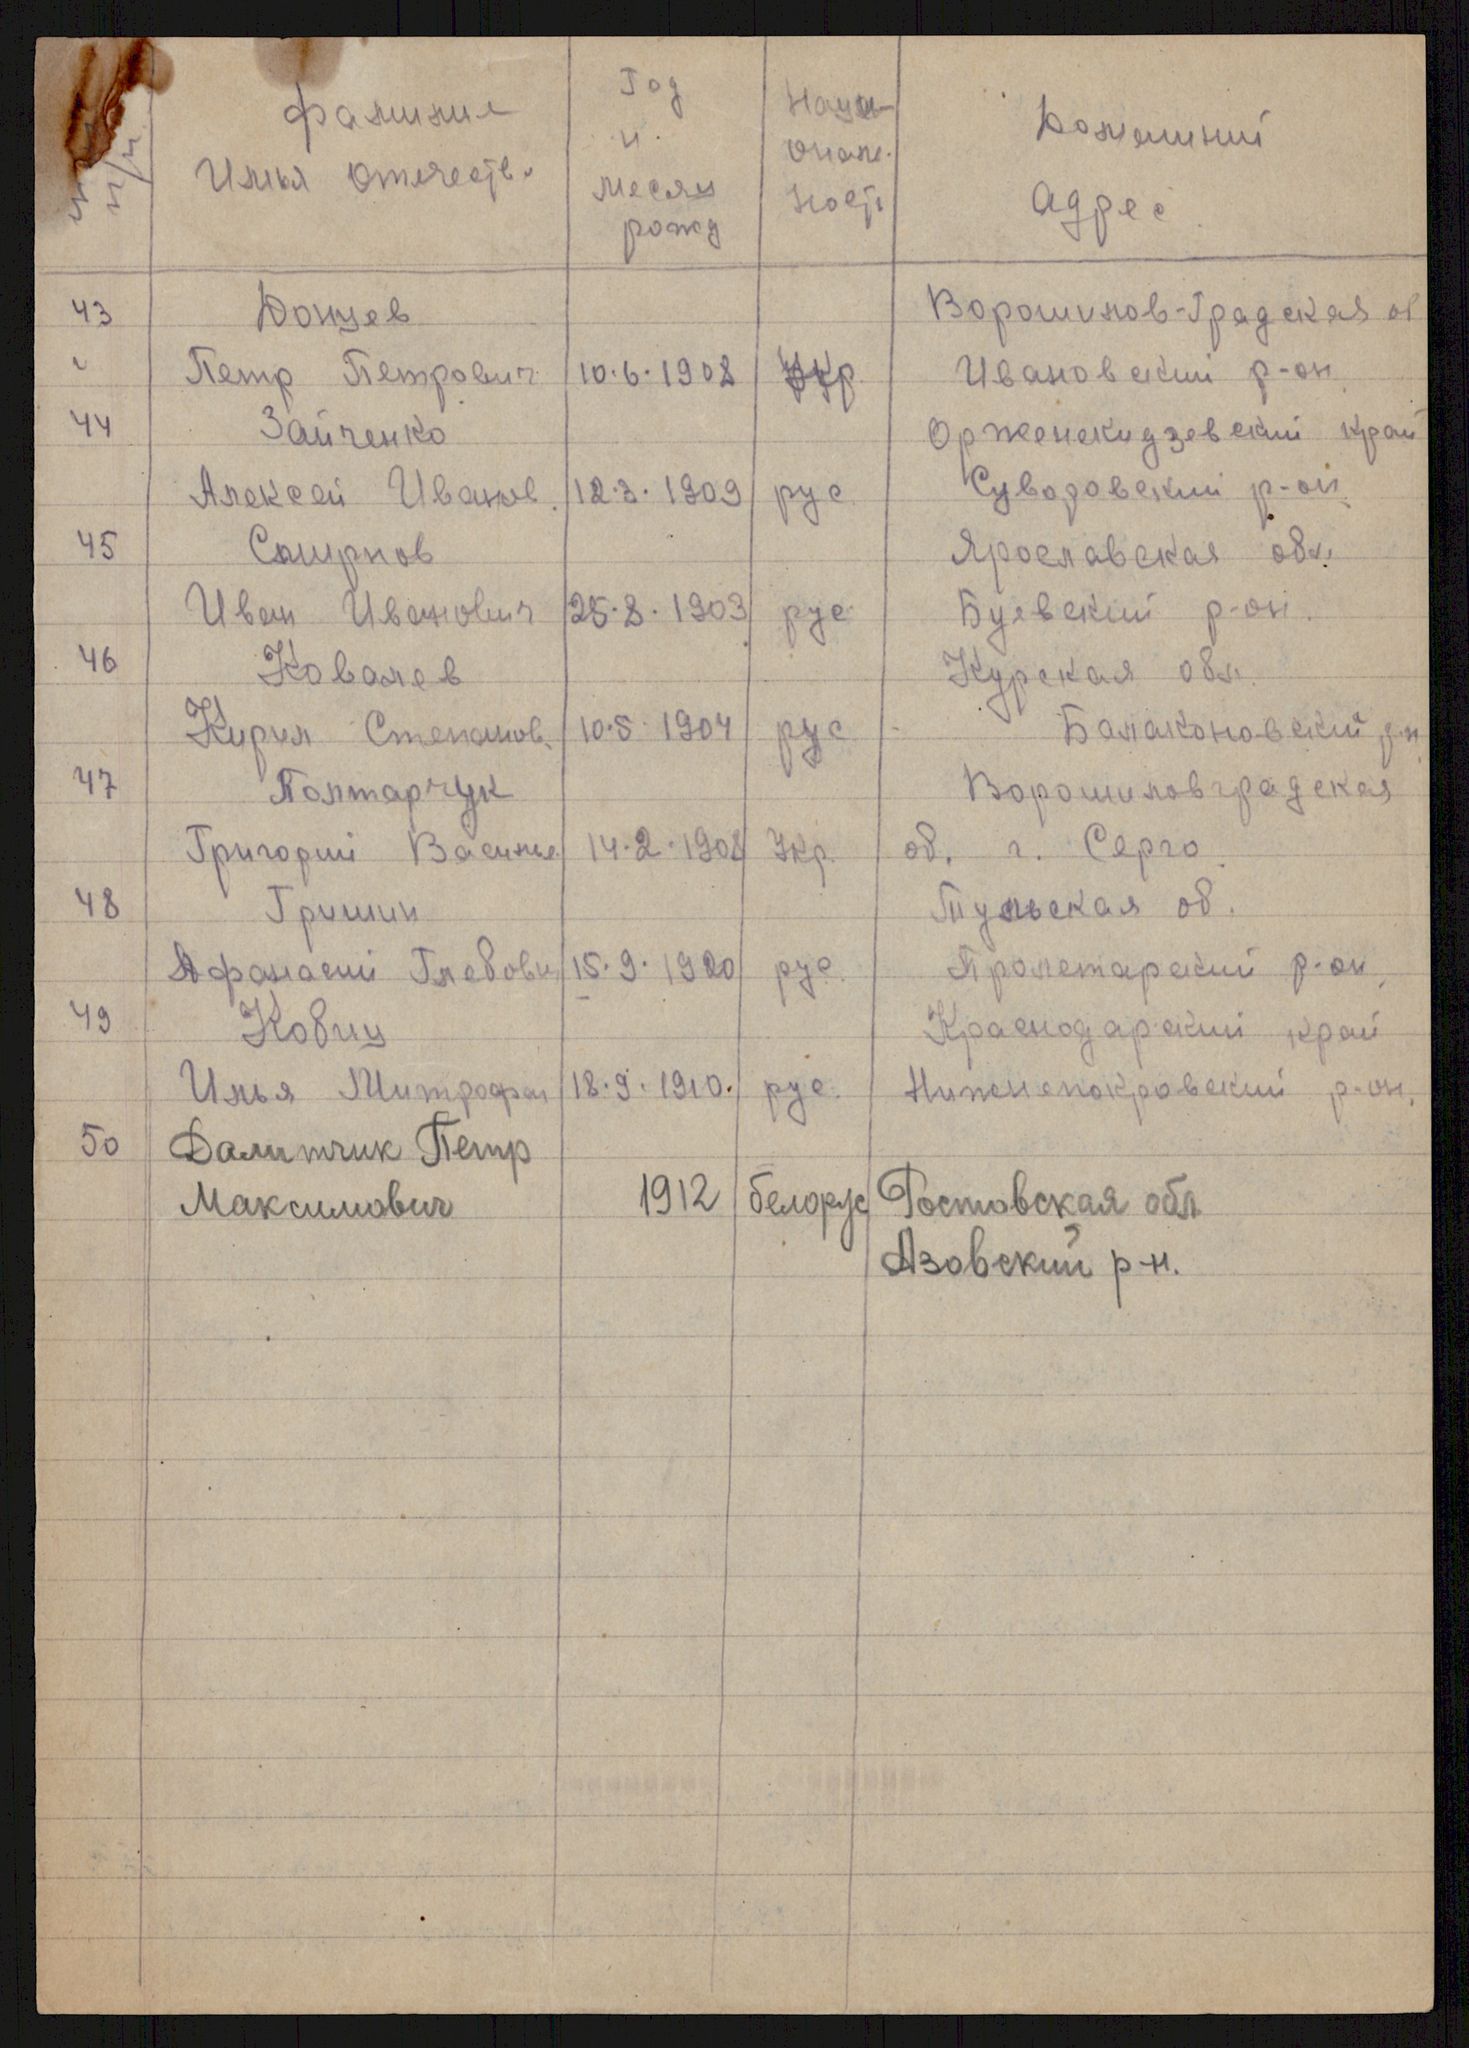 № п/п Фамилия Имья Отчество Год и месяц рожд Наци-ональ. ность Домашний Адрес
43 Донцев Ворошилов-Градская об
Петр Петрович 10.6.1908 Укр. Ивановский р-он
44 Зайченко Орженекидзевский край
Алексей Иванов. 12.3.1909 рус Суводовский р-он.
45 Смирнов Ярославская обл.
Иван Иванович 25.8.1903 рус Буевский р-он.
46 Ковалев Курская обл.
Кирил Степанов. 10.5.1904 рус Балаконовский р-н
47 Полтарчук Ворошиловградская
Григорий Василье 14.2.1908 Укр. об. г. Серго.
48 Гришин Тульская об.
Афанасий Глебови 15.9.1920 рус. Пролетарский р-он,
49 Кобиц Краснодарский край
Илья Митрофан 18.9.1910. рус. Нижнепокровский р-он.
50 Далитчик Петр
Максимович 1912 белорус Ростовская обл
Азовский р-н.